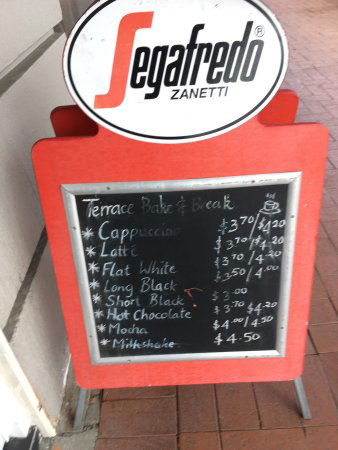 Segafredo®
ZANETTI
Terrace Bake & Break
* Cappuccino $3.70/$4.20
* Latté $3.70/4.20
* Flat White $3.70/4.20
* Long Black $3.50/4.00
* Short Black $3.00
* Hot Chocolate $3.70 $4.20
* Mocha $4.00/4.50
* Milkshake $4.50